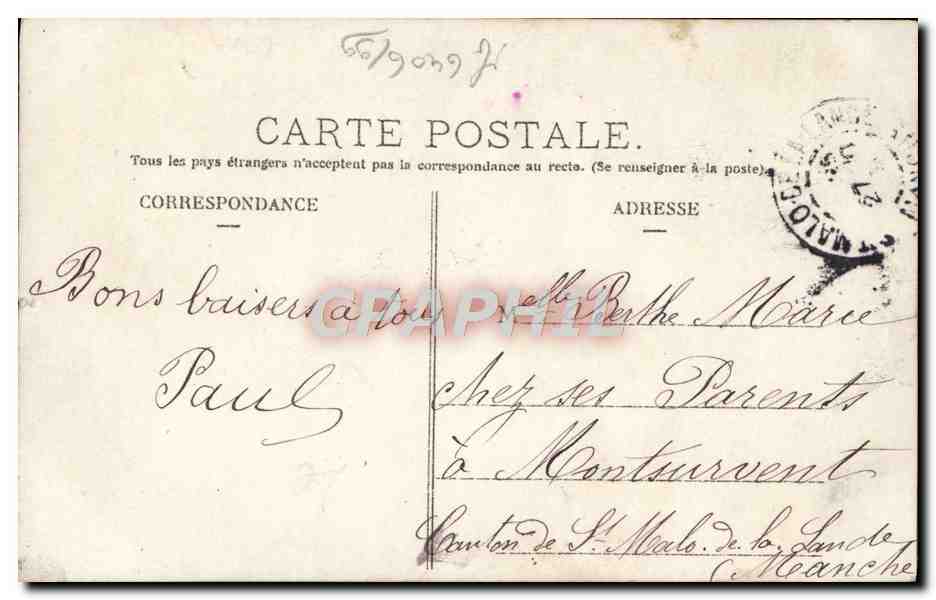 CARTE POSTALE.
Tous les pays étrangers n'acceptent pas la correspondance au recto. (Se renseigner à la poste).
CORRESPONDANCE
Bons baisers à tous
Paul
ADRESSE
Melle Berthe Marie
chez ses Parents
à Montsurvent
Canton de St Malo. de. la. Lande
(Manche
ST MALO-DE-LA-LANDE
27
CPAPHIL